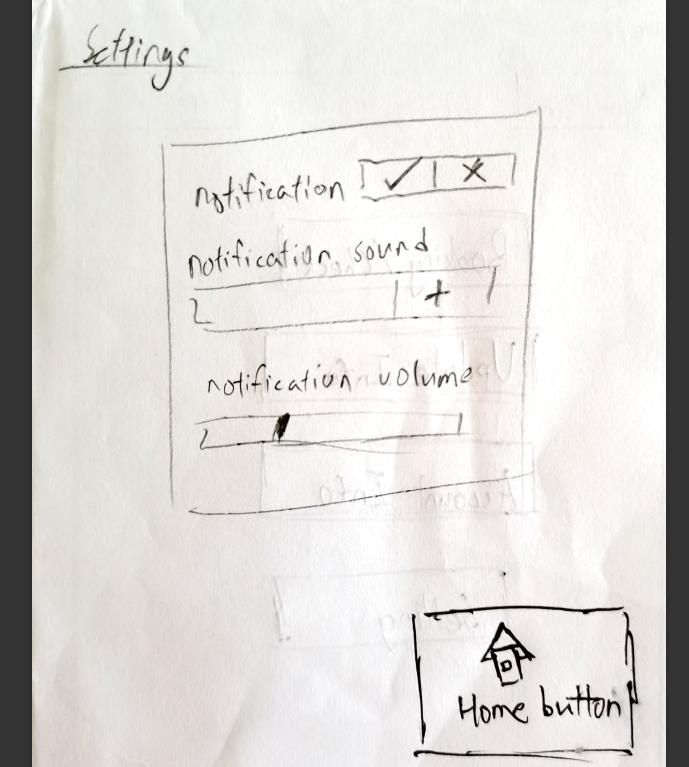 Settings
notification ✓ X
notification sound
+
notification volume
Home button